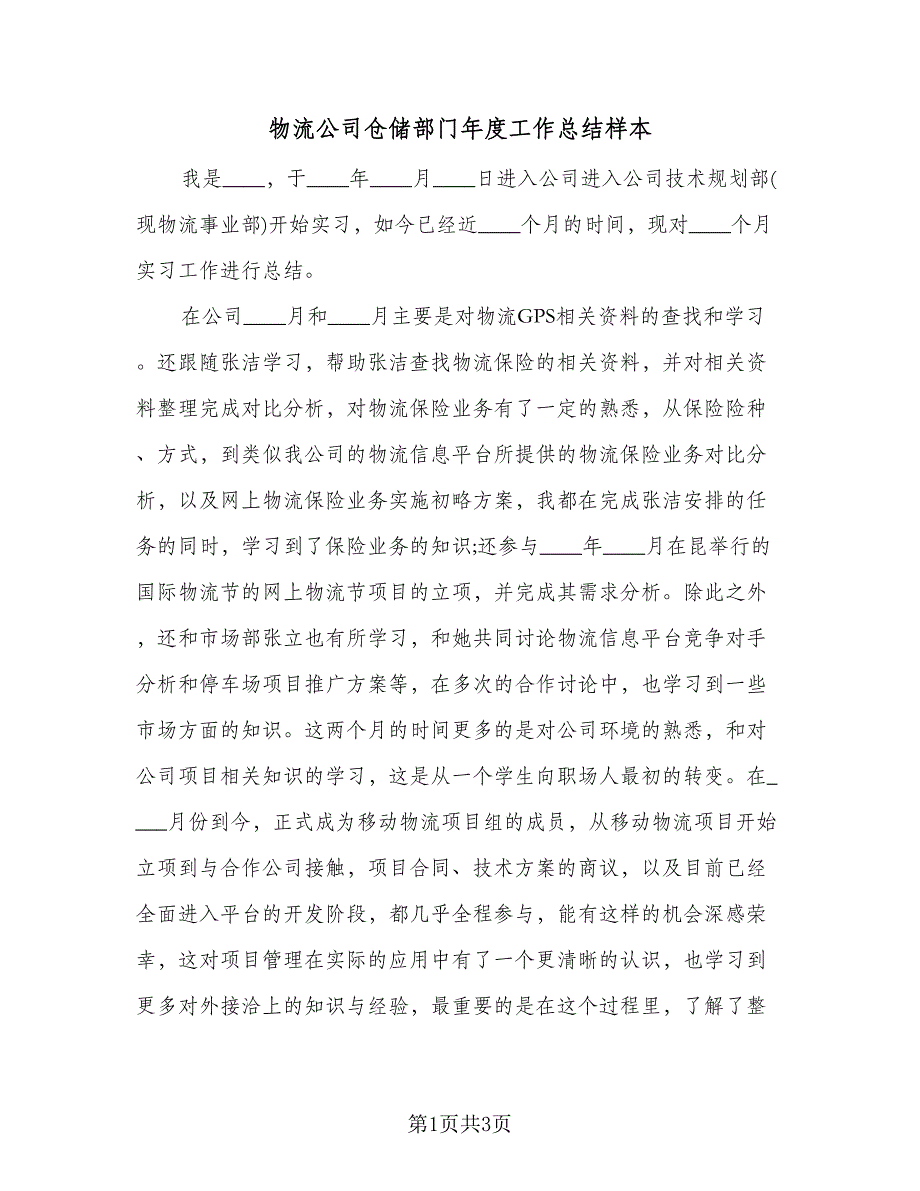 物流公司仓储部门年度工作总结样本
我是____，于____年____月____日进入公司进入公司技术规划部(
现物流事业部)开始实习，如今已经近____个月的时间，现对____个月
实习工作进行总结。
在公司____月和____月主要是对物流GPS相关资料的查找和学习
。还跟随张洁学习，帮助张洁查找物流保险的相关资料，并对相关资
料整理完成对比分析，对物流保险业务有了一定的熟悉，从保险险种
、方式，到类似我公司的物流信息平台所提供的物流保险业务对比分
析，以及网上物流保险业务实施初略方案，我都在完成张洁安排的任
务的同时，学习到了保险业务的知识;还参与____年____月在昆举行的
国际物流节的网上物流节项目的立项，并完成其需求分析。除此之外
，还和市场部张立也有所学习，和她共同讨论物流信息平台竞争对手
分析和停车场项目推广方案等，在多次的合作讨论中，也学习到一些
市场方面的知识。这两个月的时间更多的是对公司环境的熟悉，和对
公司项目相关知识的学习，这是从一个学生向职场人最初的转变。在_
___月份到今，正式成为移动物流项目组的成员，从移动物流项目开始
立项到与合作公司接触，项目合同、技术方案的商议，以及目前已经
全面进入平台的开发阶段，都几乎全程参与，能有这样的机会深感荣
幸，这对项目管理在实际的应用中有了一个更清晰的认识，也学习到
更多对外接洽上的知识与经验，最重要的是在这个过程里，了解了整
第1页共3页